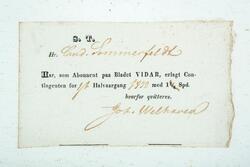 S. T.
Hr. Cand. Sommerfeldt
Har, som Abonnent paa Bladet VIDAR, erlagt Con-
tingenten for 1st Halvaargang 1833 med 1½ Spd.
hvorfor qvitteres.
Joh. Welhaven